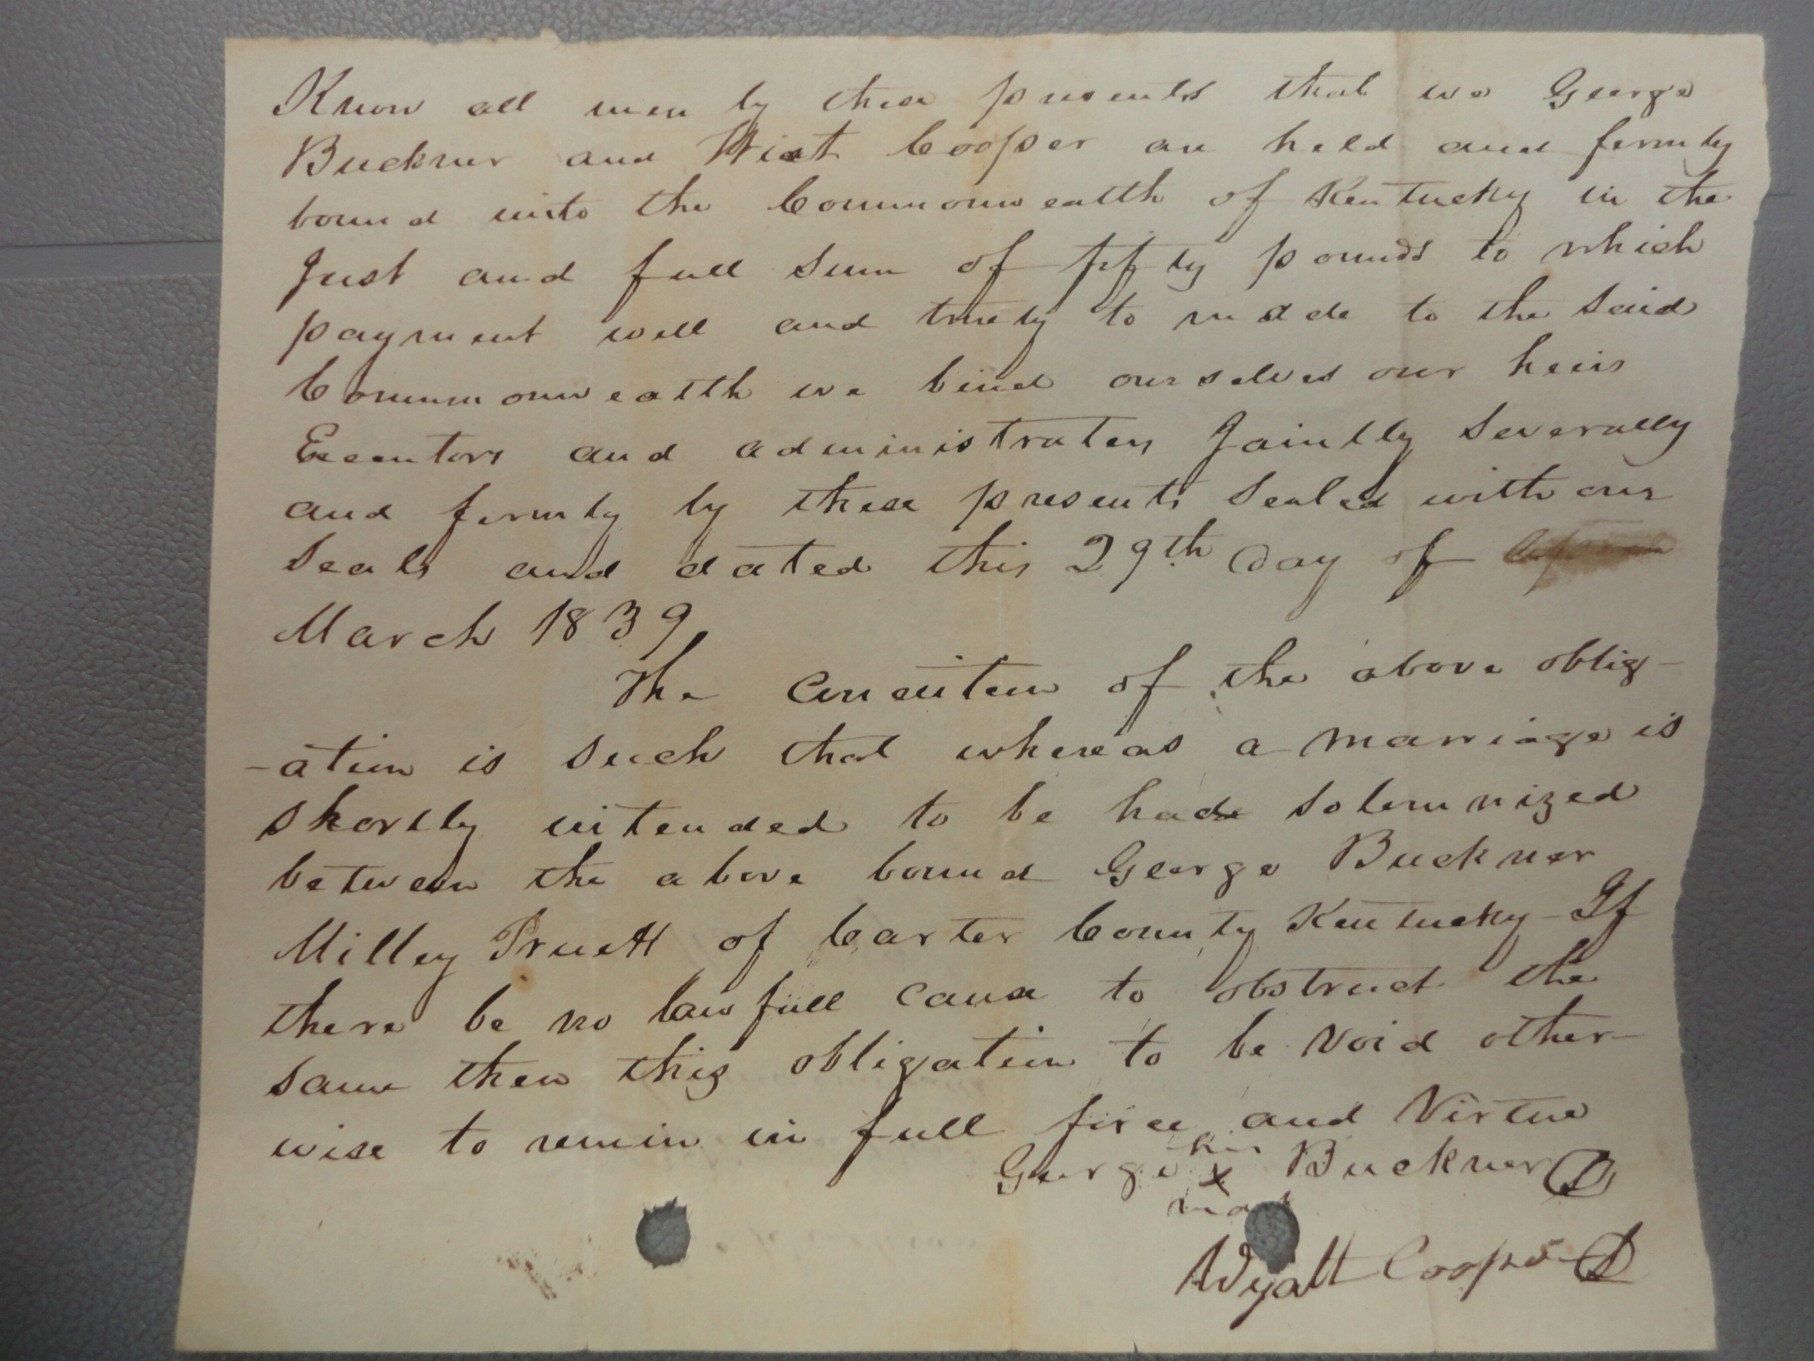 Know all men by these presents that we George
Buckner and Wiat Cooper are held and firmly
bound unto the Commonwealth of Kentucky in the
Just and full sum of fifty pounds to which
payment well and truely to made to the said
Commonwealth we bind ourselves our heirs
Executors and administraters Jaintly Severally
and firmly by these presents Sealed with our
Seals and dated this 29th Day of
March 1839
The Condition of the above oblig-
-ation is such that whereas a marriage is
shortly intended to be had solemnized
between the above bound George Buckner
Milley Pruett of Carter County Kentucky - If
there be no lawfull cause to obstruct the
same then this obligation to be void other-
wise to remin in full force and Virtue
George his X mark Buckner
Wyatt Cooper